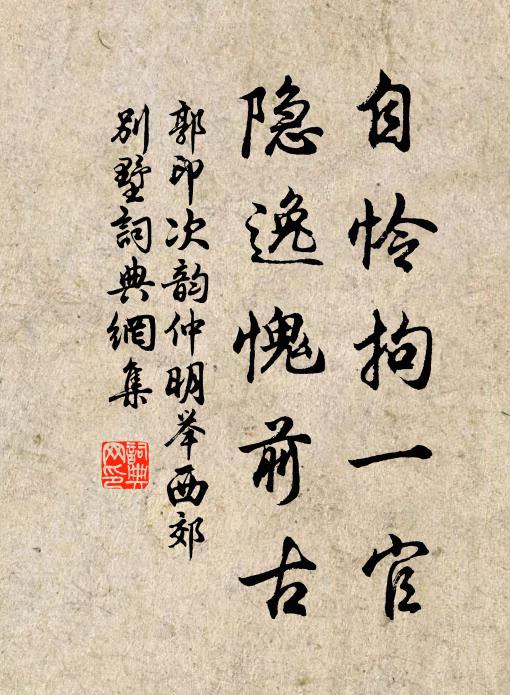 自怜拘一官
隐逸愧前古
郭印次韵仲明举西郊
别墅词典網集
詞典网印